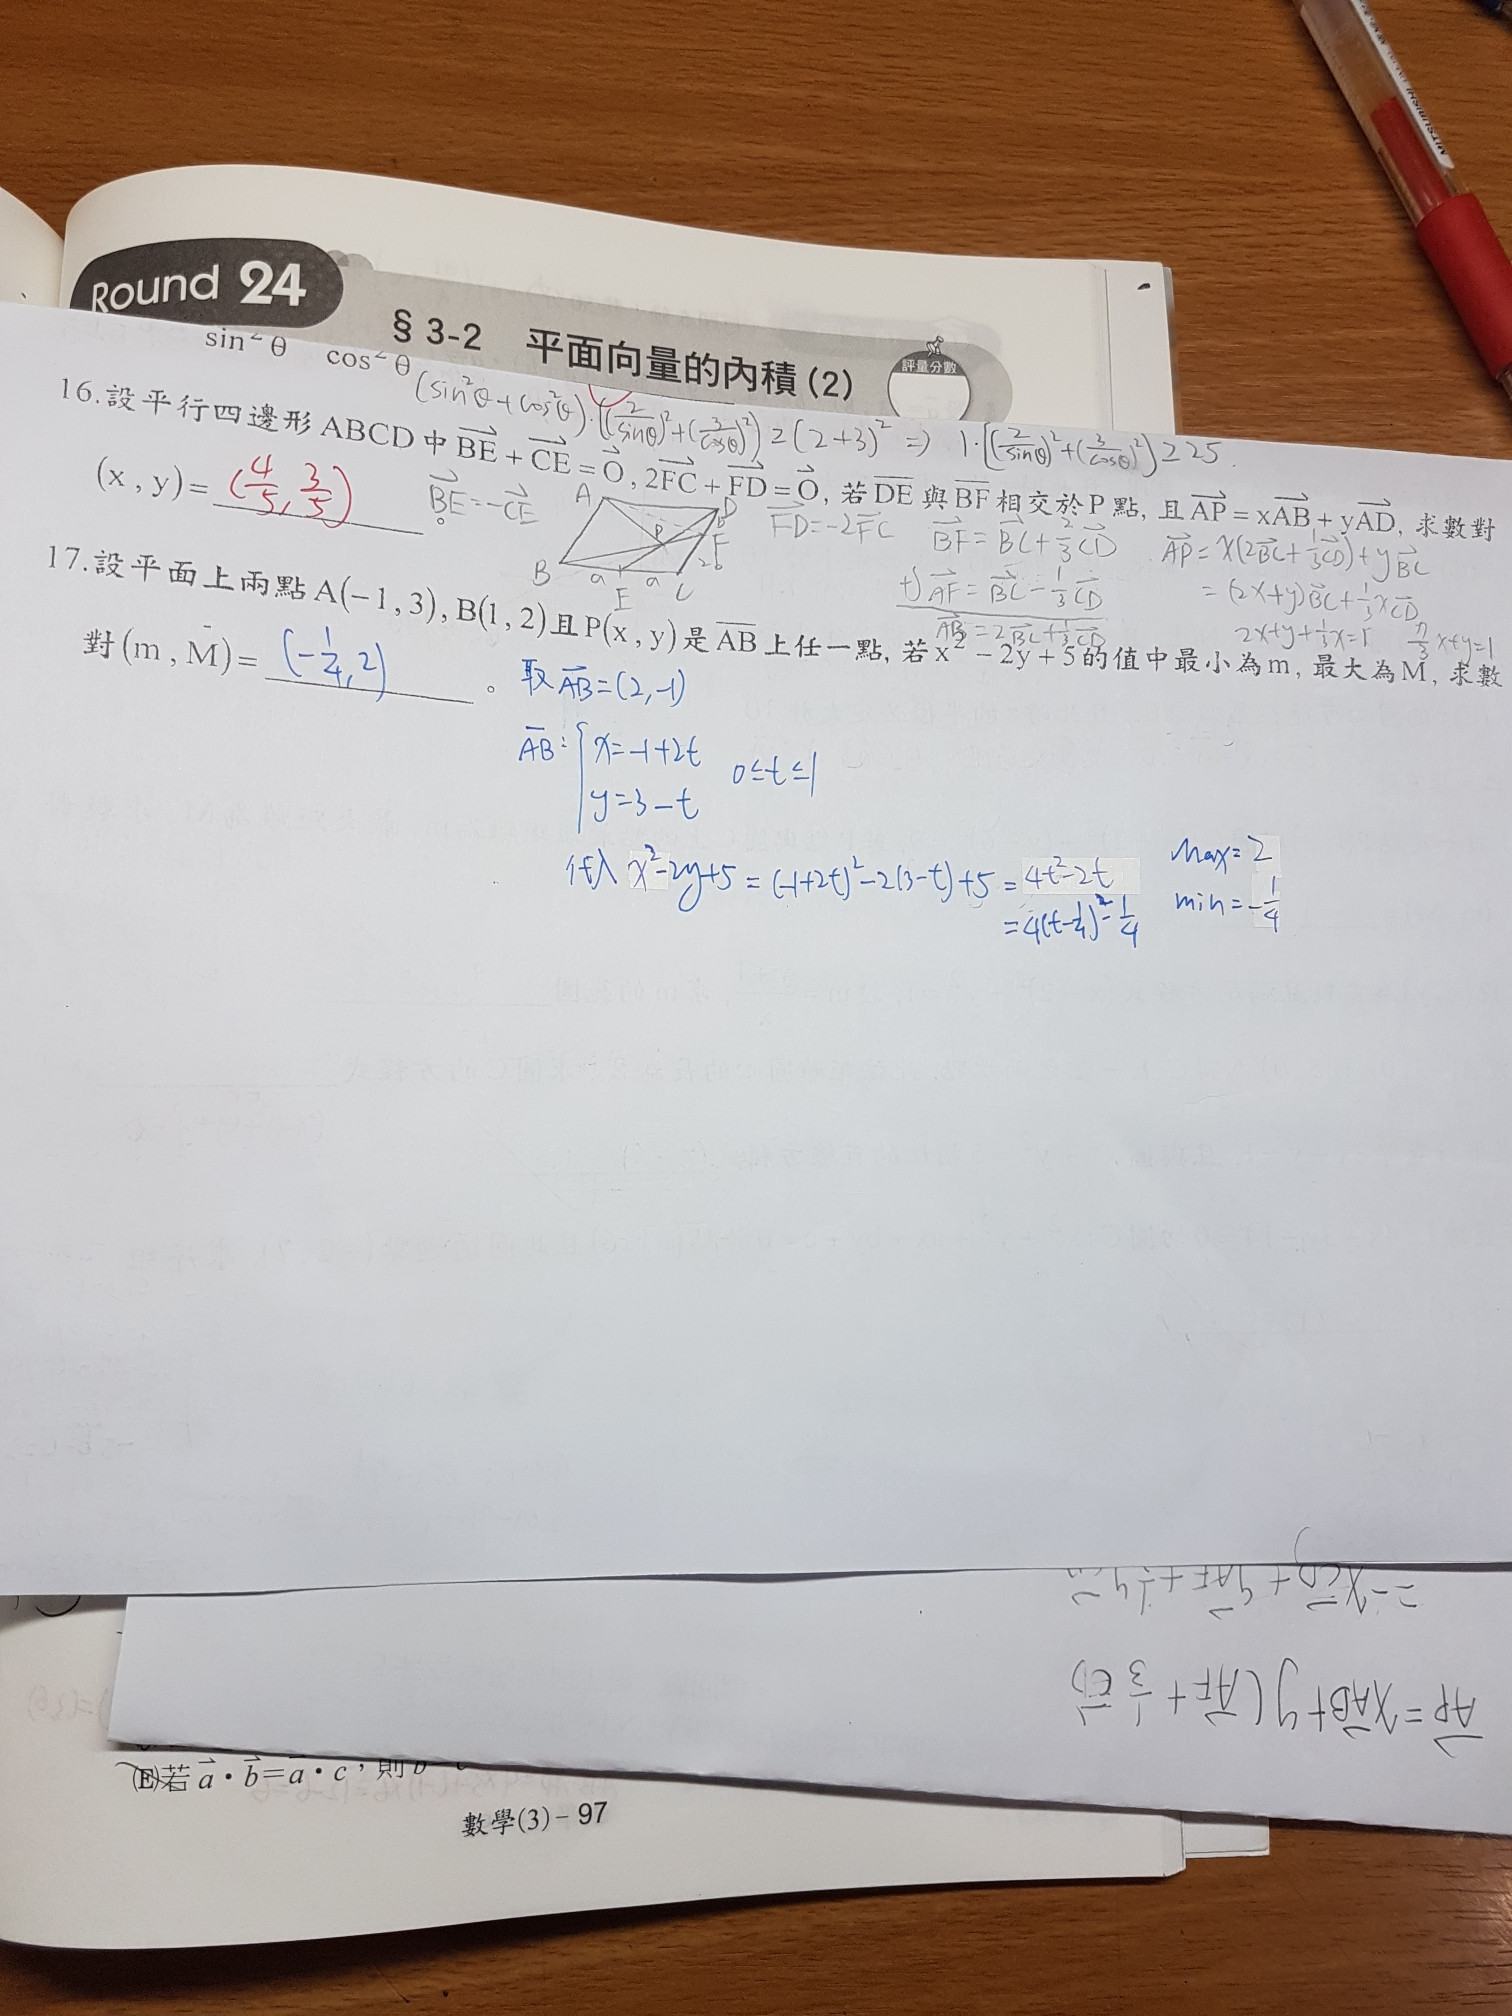 MITSUBISHI
Round 24
§3-2 平面向量的內積(2)
評量分數
sin²θ cos²θ
(sin²θ+cos²θ)·[(2/sinθ)²+(3/cosθ)²]≥(2+3)² ⇒ 1·[(2/sinθ)²+(3/cosθ)²]≥25.
16.設平行四邊形ABCD中BE+CE=O, 2FC+FD=O, 若DE與BF相交於P點, 且AP=xAB+yAD, 求數對
(x, y)=(4/5, 3/5)。
BE=-CE
A D P F b 2b B a E a C
FD=-2FC
BF=BC+2/3CD
+) AF=BC-1/3CD
AB=2BC+1/3CD
AP=x(2BC+1/3CD)+yBC
=(2x+y)BC+1/3xCD
2x+y+1/3x=1 7/3x+y=1
17.設平面上兩點A(-1, 3), B(1, 2)且P(x, y)是AB上任一點, 若x²-2y+5的值中最小為m, 最大為M, 求數
對(m, M)=(-1/4, 2)。
取AB=(2,-1)
AB: { x=-1+2t
y=3-t
0≤t≤1
代入 x²-2y+5=(-1+2t)²-2(3-t)+5=4t²-2t
=4(t-1/4)²-1/4
Max=2
min=-1/4
AP=xAB+y(AF+1/3CD)
=-xCD+yAF+1/3yCD
(E)若a·b=a·c，則b
數學(3)-97